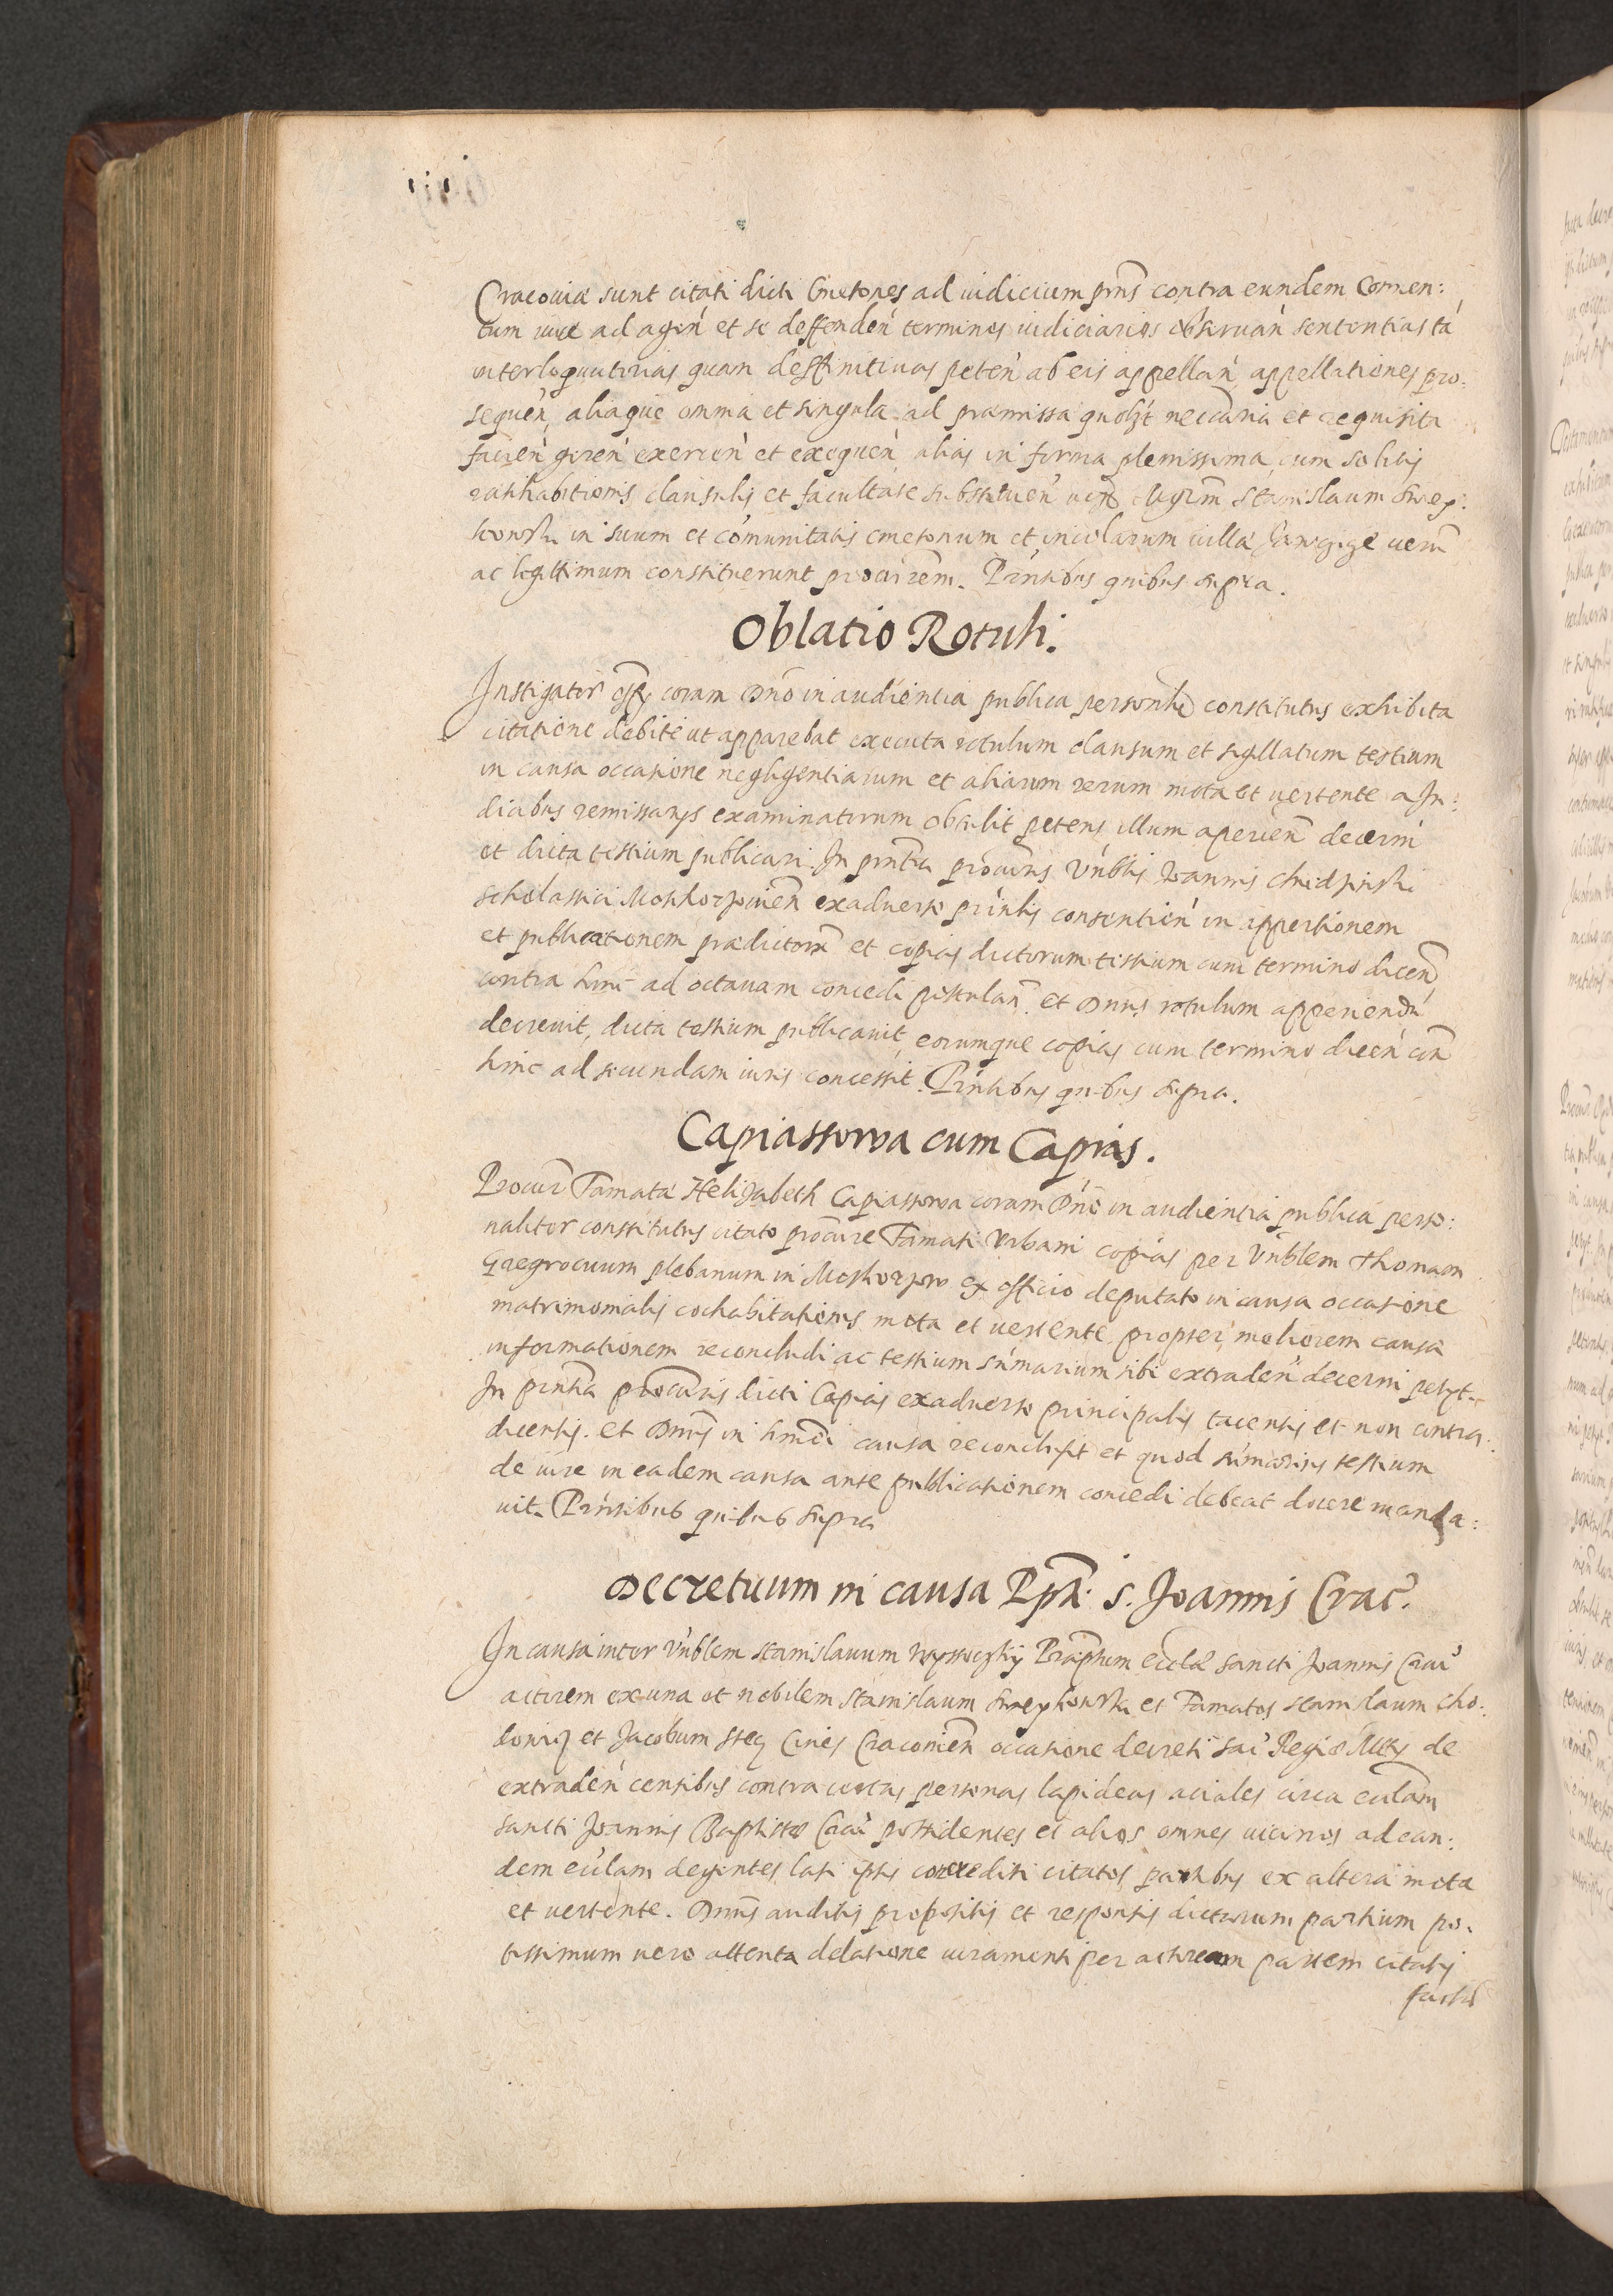 Cracoviæ sunt citati dicti Cmetones ad iudicium pñs contra eundem Conuen:
tum iure ad agen̄ et se deffenden̄ terminos iudiciarios obseruan̄ sententias tā
interloquutorias quam deffinitiuas peten̄ ab eis appellan̄ appellationes pro:
sequen̄ aliaque omnia et singula ad præmissa necc̄aria et requisita
facien̄ geren̄ exercen̄ et exequen̄ alias in forma plenissima cum solitis
ratihabitionis clausulis et facultate substituen̄ Stanislaum
in suum et com̄unitatis cmetonum et incolarum villæ uerū
ac legittimum constituerunt procur̄em. Pr̄ntibus quibus supra.
Oblatio Rotuli.
Instigator coram Dn̄o in audientia publica personlr̄ constitutus exhibita
citatione debite ut apparebat executa rotulum clausum et sigillatum testium
in causa occasione negligentiarum et aliarum rerum mota et uertente a Ju:
dicibus remissarijs examinatorum obtulit petens illum aperien̄ decerni
et dicta testium publicari. In pñtia procur̄is Vn̄blis Joannis
scholastici exaduerso pr̄ntis consentien̄ in appertionem
et publicationem prædictorū et copias dictorum testium cum termino dicen̄
contra hinc ad octauam concedi postulan̄. et Dnus rotulum apperiendū
decreuit, dicta testium publicauit, eorumque copias cum termino dicen̄ con̄
hinc ad secundam iuris concessit. Pr̄ntibus quibus supra.
Capiassowa cum Capias.
Procur̄ Famatæ Helizabeth Capiassowa coram Dn̄o in audientia publica perso:
naliter constitutus citato procur̄e Famati Urbani Copias per Vn̄blem Thomam
plebanum in ex officio deputato in causa occasione
matrimonialis cochabitationis mota et uertente propter meliorem causæ
informationem reconcludi ac testium sum̄arium sibi extraden̄ decerni petyt.
In pñtia procur̄is dicti Capias exaduerso principalis tacentis et non contra:
dicentis. et Dnus in causa reconclusit et quod sum̄arius testium
de iure in eadem causa ante publicationem concedi debeat docere manda:
uit. Pr̄ntibus quibus supra
Decretuum in causa Ppti S. Joannis Crac̄.
In causa inter Vn̄blem Stanislauum Præptum ecclæ sancti Joannis Crac̄
actorem ex una et nobilem Stanislaum et Famatos Stanislaum Cho:
et Jacobum Ciues Cracouien̄ occasione decreti Sac̄ Regiæ Mttis de
extraden̄ censibus contra certas personas lapideas aciales circa ecclam
sancti Joannis Baptistæ Crac̄ possidentes et alios omnes uicinos ad ean:
dem ecclam degentes lati ipsis concrediti citatos partibus ex altera mota
et uertente. Dnus auditis propositis et responsis dictarum partium po:
tissimum uero attenta delatione iuramenti per actoream partem citatis